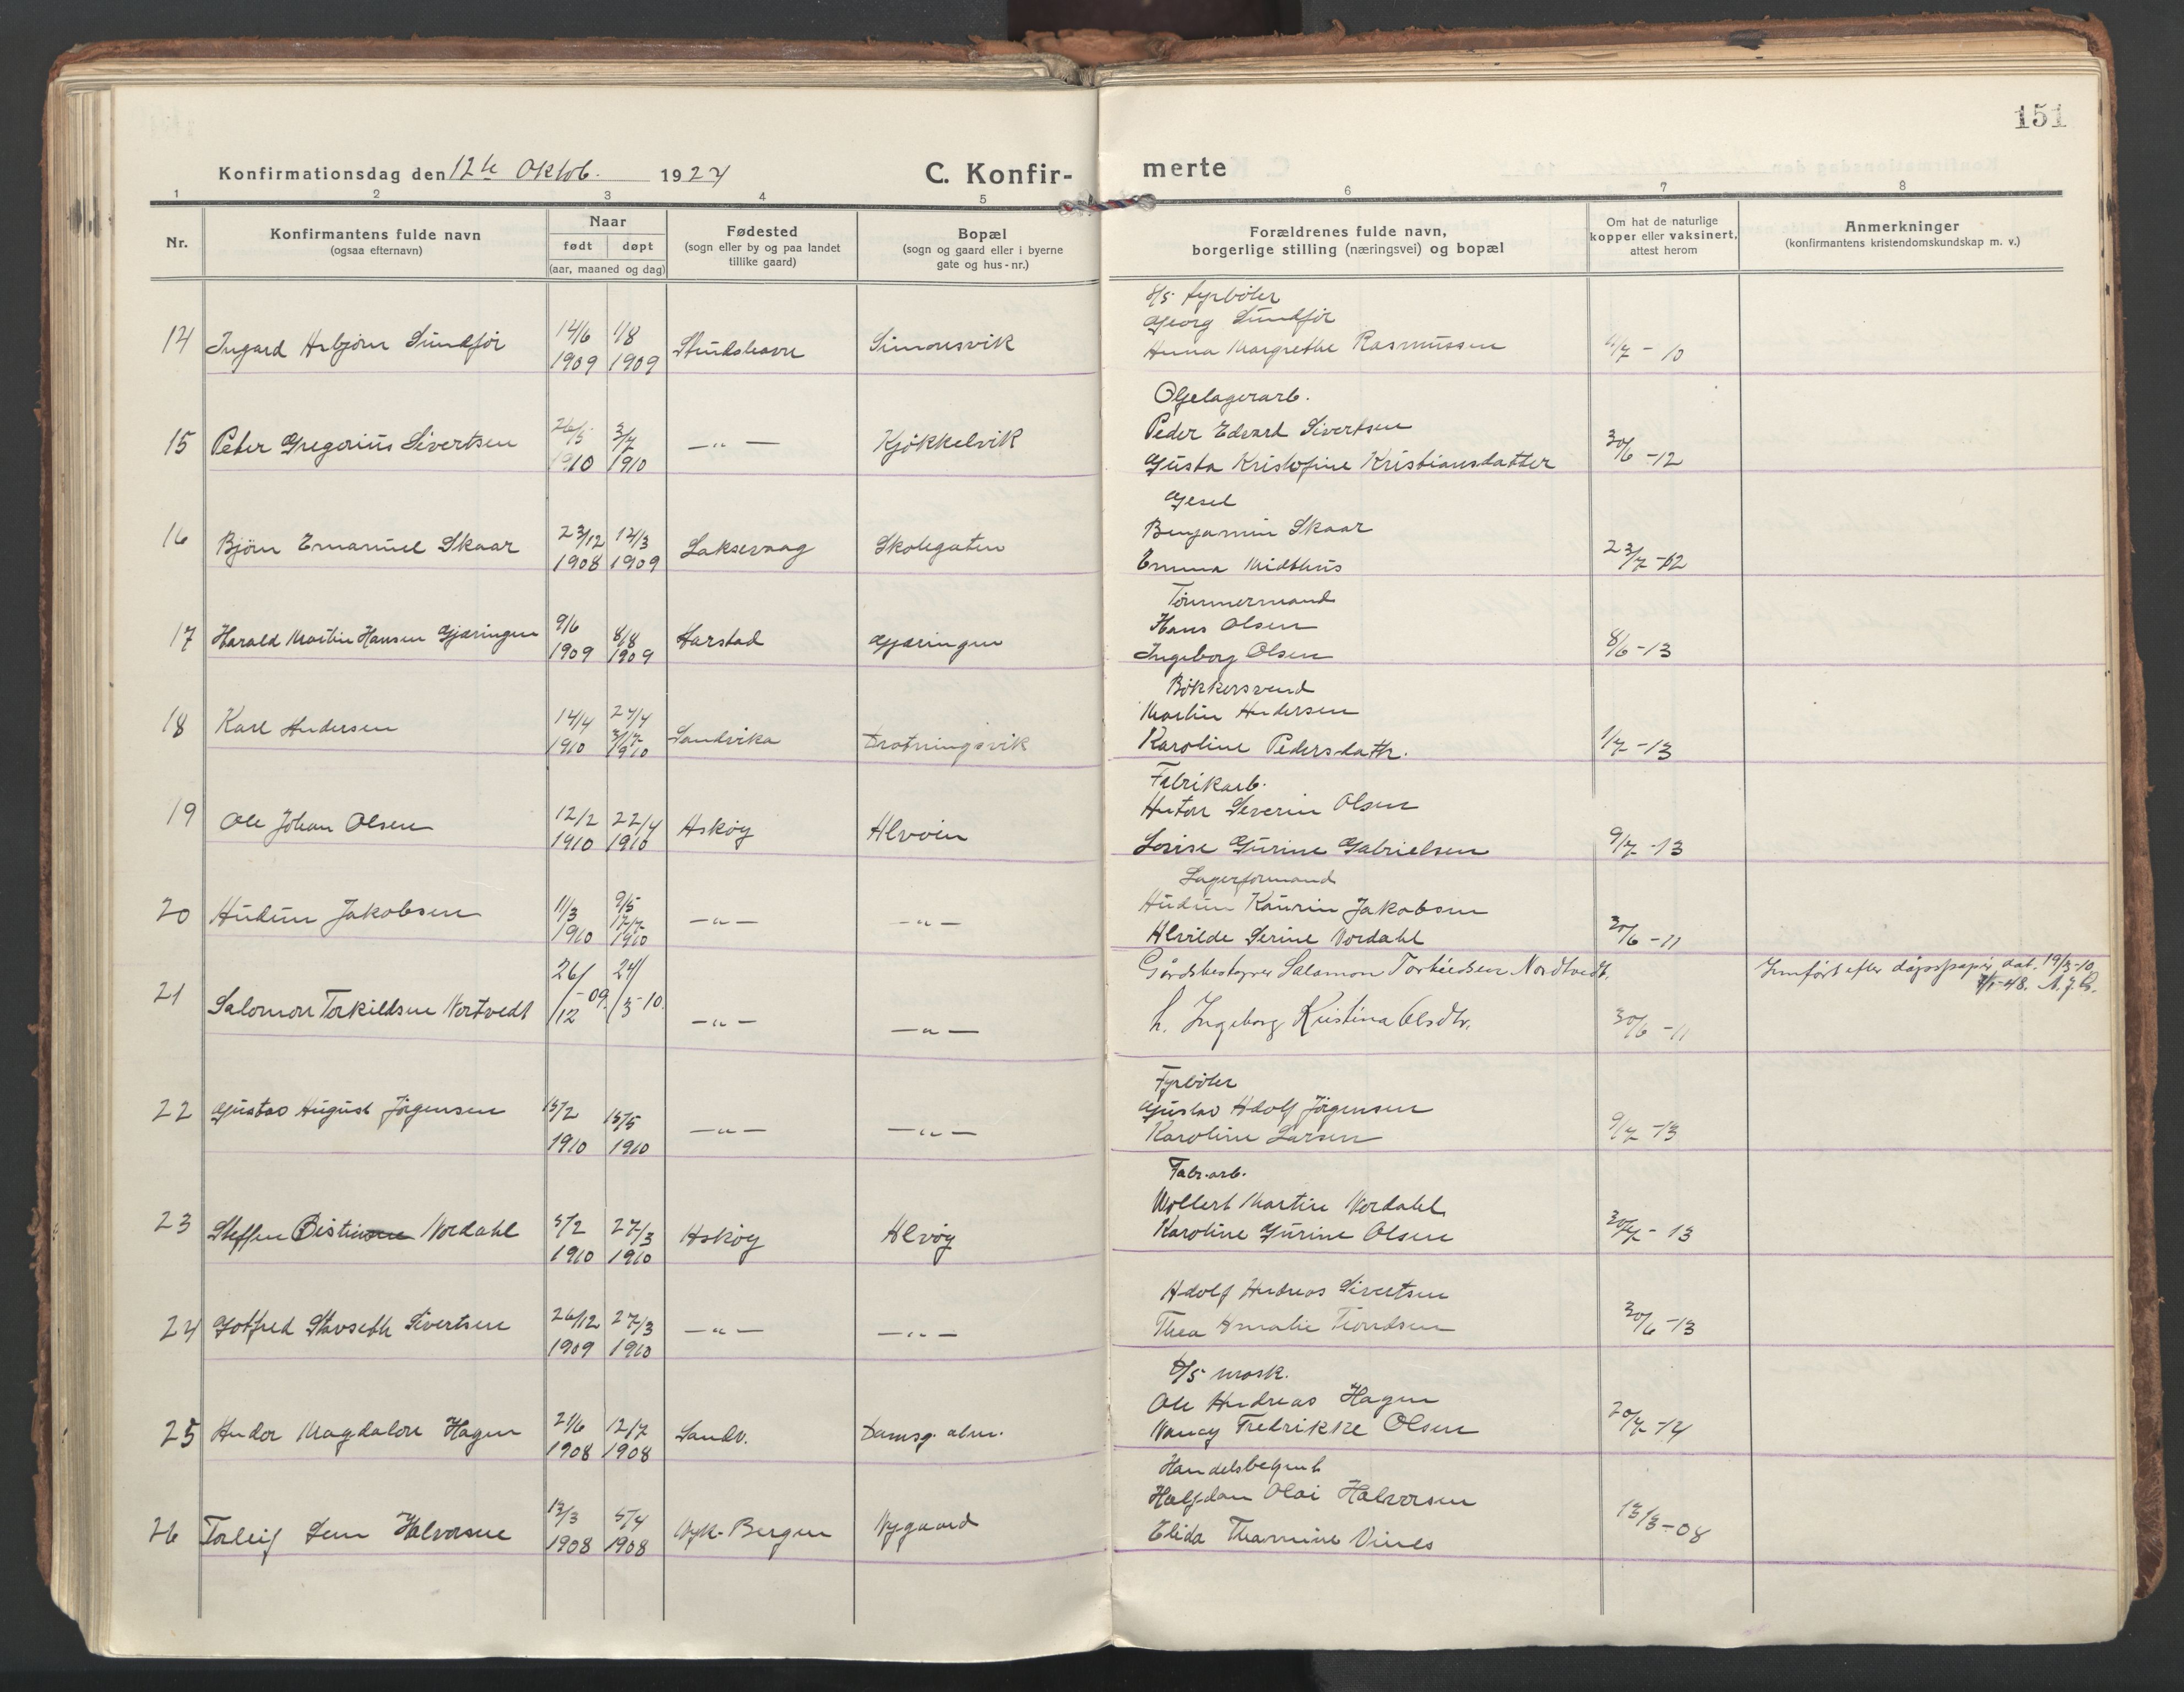 151
Konfirmationsdag den 12te Oktob. 1924
C. Konfir-
merte
1 2 3 4 5 6 7 8
Nr.
Konfirmantens fulde navn
(ogsaa efternavn)
Naar
født døpt
(aar, maaned og dag)
Fødested
(sogn eller by og paa landet
tillike gaard)
Bopæl
(sogn og gaard eller i byerne
gate og hus-nr.)
Forældrenes fulde navn,
borgerlige stilling (næringsvei) og bopæl
Om hat de naturlige
kopper eller vaksinert,
attest herom
Anmerkninger
(konfirmantens kristendomskundskap m. v.)
D/S fyrbøter
Georg Sundfør
14 Ingard Asbjørn Sundfør 14/6 1909 1/8 1909 Simonsvik
Anna Margrethe Rasmussen /7-10
Oljelagerarb.
Peder Edvard Sivertsen
15 Peter Gregorius Sivertsen 26/5 1910 3/7 1910 -"- Kjøkkelvik
Gusta Kristofine Kristiansdatter 30/6-12
Benjamin Skaar
16 Bjørn Emanuel Skaar 23/12 1908 14/3 1909 Laksevaag Skolegaten
Emma Midthus 23/7-12
Tømmermand
Hans Olsen
17 Harald Martin Hansen Gjæringen 9/6 1909 8/8 1909 Harstad Gjæringen
Ingeborg Olsen 8/6-13
Bøkkersvend
Martin Andersen
18 Karl Andersen 14/4 1910 24/4 3/7 1910 Sandvika Drotningsvik
Karoline Pedersdattr. 1/7-13
Fabrikarb.
Anton Severin Olsen
19 Ole Johan Olsen 12/2 1910 22/4 1910 Askøy Alvøen
Lovise Gurine Gabrielsen 9/7-13
Lagerformand
Audun Kaurin Jakobsen
20 Audun Jakobsen 11/3 1910 9/5 17/7 1910 -"- -"-
Alvilde Serine Nordahl 30/6-11
Gårdsbestyrer Salamon Torkildsen Nordtvedt.
21 Salomon Torkildsen Nortvedt 26/12-09. 24/3-10. -"- -"-
h. Ingeborg Kristina Olsdtr. 30/6-11
Jemført efter dåpspapir, dat. 19/3-10
7/1-48. A.J.G.
Fyrbøter
Gustav Adolf Jørgensen
22 Gustav August Jørgensen 15/2 1910 15/5 1910 -"- -"-
Karoline Larsen 9/7-13
Fabr.arb.
Wollert Martin Nordahl
23 Steffen Nordahl 5/2 1910 27/3 1910 Askøy Alvøy
Karoline Gurine Olsen 30/7-13
Adolf Andreas Sivertsen
24 Gotfred Stavseth Sivertsen 26/12 1909 27/3 1910 -"- -"-
Thea Amalie 30/6-13
D/S mask.
Ole Andreas Hagen
25 Andor Magdalon Hagen 21/6 1908 12/7 1908 Sandv. Damsg. alm.
Nancy Fredrikke Olsen 20/7-14
Handelsbetjent
Halfdan Olai Halvorsen
26 Torleif Halvorsen 13/3 1908 5/4 1908 Nyk. Bergen Nygaard
Elida Thamine Vines 13/3-08